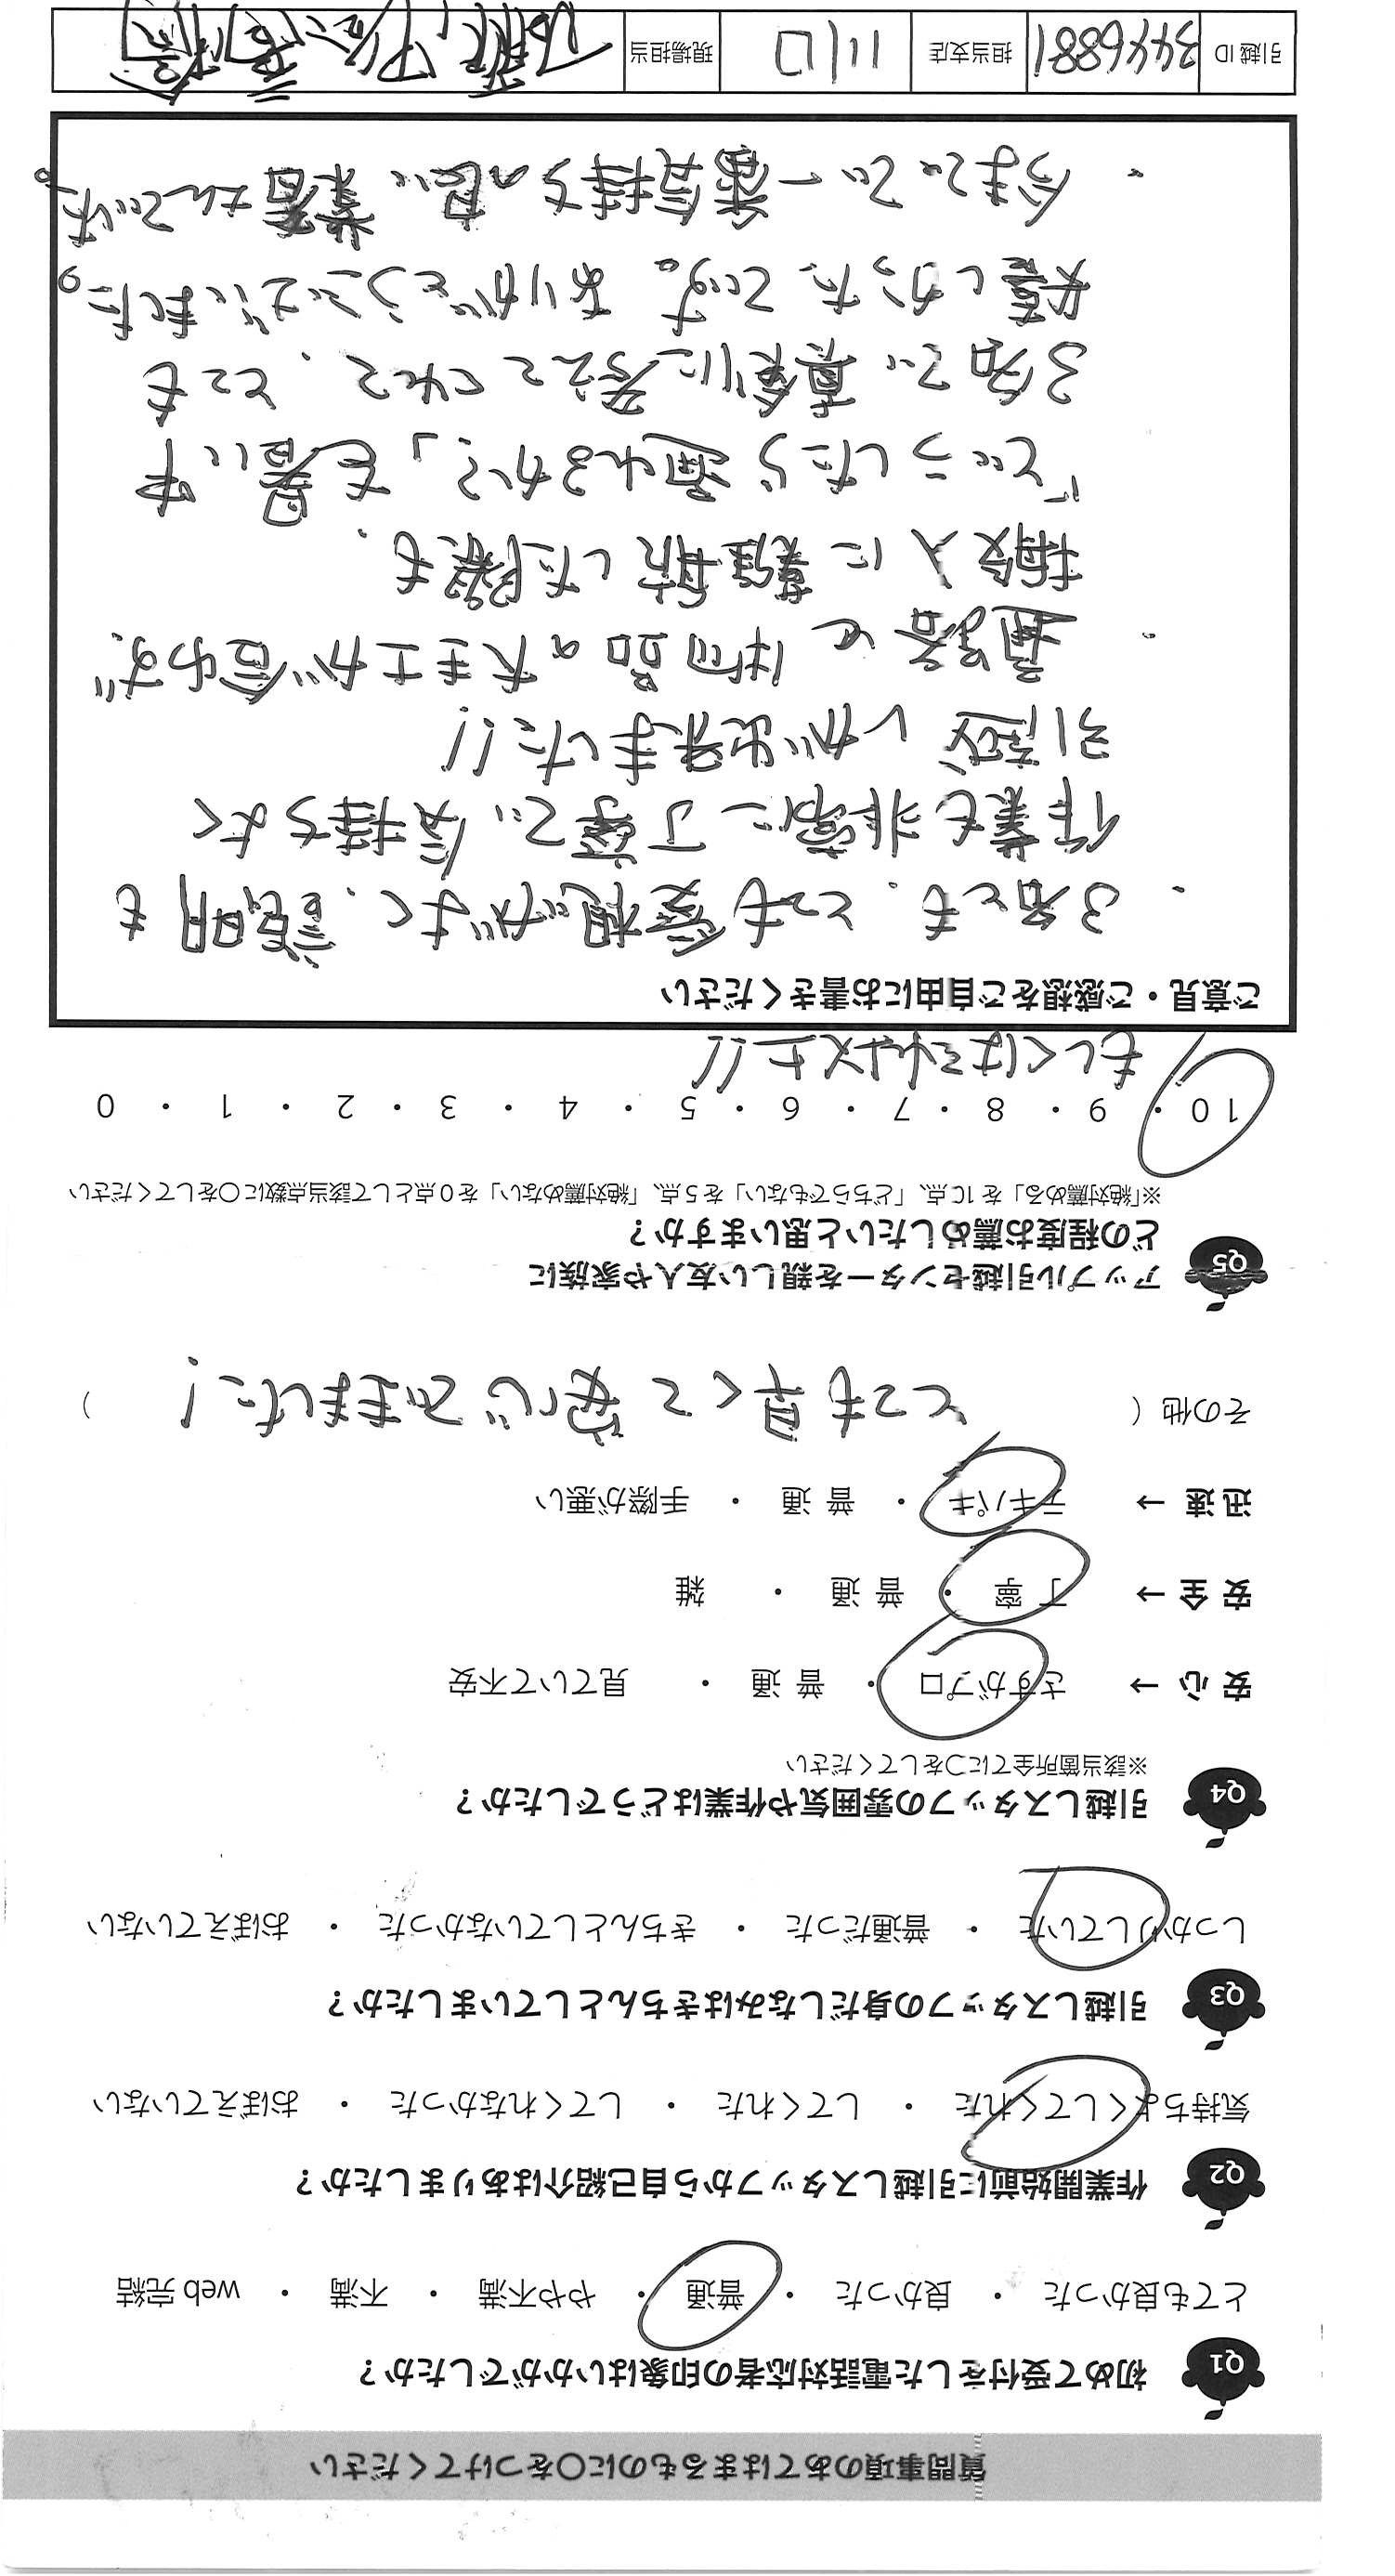 質問事項のあてはまるものに○をつけてください
Q1 初めて受付をした電話対応者の印象はいかがでしたか？
とても良かった ・ 良かった ・ 普通 ・ やや不満 ・ 不満 ・ web 完結
Q2 作業開始前に引越しスタッフから自己紹介はありましたか？
気持ちよくしてくれた ・ してくれた ・ してくれなかった ・ おぼえていない
Q3 引越しスタッフの身だしなみはきちんとしていましたか？
しっかりしていた ・ 普通だった ・ きちんとしていなかった ・ おぼえていない
Q4 引越しスタッフの雰囲気や作業はどうでしたか？
※該当箇所全てに○をしてください
安 心 → さすがプロ ・ 普 通 ・ 見ていて不安
安 全 → 丁 寧 ・ 普 通 ・ 雑
迅 速 → テキパキ ・ 普 通 ・ 手際が悪い
その他（ とても早くて安心できました！ ）
Q5 アップル引越センターを親しい友人や家族に
どの程度お薦めしたいと思いますか？
※「絶対薦める」を 10 点、「どちらでもない」を 5 点、「絶対薦めない」を 0 点として該当点数に○をしてください
10 ・ 9 ・ 8 ・ 7 ・ 6 ・ 5 ・ 4 ・ 3 ・ 2 ・ 1 ・ 0
もしくはそれ以上!!
ご意見・ご感想をご自由にお書きください
・ 3名とも、とても愛想がよく、説明も
作業も非常に丁寧で、気持ちよく
引越しが出来ました!!
・ 通路と物品の大きさが合わず、
搬入に難航した際も、
「どうしたら通れるか?」を暑い中
3名で、真剣に考えてくれて、とても
嬉しかったです。ありがとうございました。
・ 今までで一番気持ちの良い業者さんでした。
引越 ID 3446881 担当支店 川口 現場担当